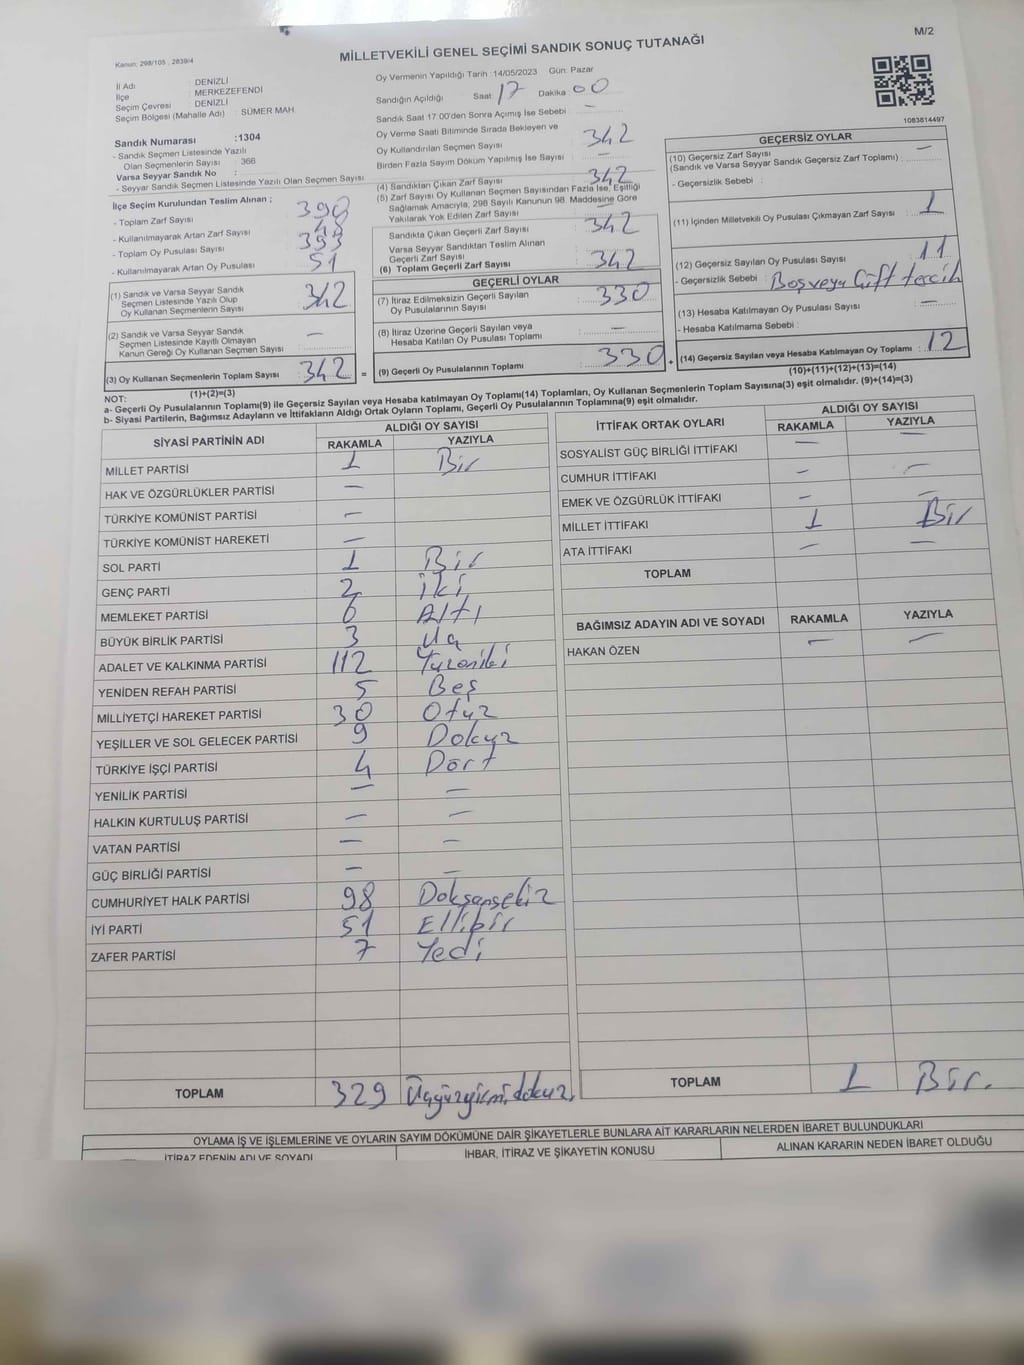 M/2
MİLLETVEKİLİ GENEL SEÇİMİ SANDIK SONUÇ TUTANAĞI
Kanun; 298/105 , 2839/4
İl Adı : DENİZLİ
İlçe : MERKEZEFENDİ
Seçim Çevresi : DENİZLİ
Seçim Bölgesi (Mahalle Adı) : SÜMER MAH.
Sandık Numarası :1304
- Sandık Seçmen Listesinde Yazılı
Olan Seçmenlerin Sayısı : 366
Varsa Seyyar Sandık No :
- Seyyar Sandık Seçmen Listesinde Yazılı Olan Seçmen Sayısı
İlçe Seçim Kurulundan Teslim Alınan ;
- Toplam Zarf Sayısı : 390
- Kullanılmayarak Artan Zarf Sayısı : 48
- Toplam Oy Pusulası Sayısı : 393
- Kullanılmayarak Artan Oy Pusulası : 51
(1) Sandık ve Varsa Seyyar Sandık
Seçmen Listesinde Yazılı Olup
Oy Kullanan Seçmenlerin Sayısı : 342
(2) Sandık ve Varsa Seyyar Sandık
Seçmen Listesinde Kayıtlı Olmayan
Kanun Gereği Oy Kullanan Seçmen Sayısı : —
(3) Oy Kullanan Seçmenlerin Toplam Sayısı : 342 =
(1)+(2)=(3)
Oy Vermenin Yapıldığı Tarih :14/05/2023 Gün: Pazar
Sandığın Açıldığı Saat: 17 Dakika: 00
Sandık Saat 17.00'den Sonra Açımış İse Sebebi : —
Oy Verme Saati Bitiminde Sırada Bekleyen ve
Oy Kullandırılan Seçmen Sayısı : 342
Birden Fazla Sayım Döküm Yapılmış İse Sayısı : —
(4) Sandıktan Çıkan Zarf Sayısı : 342
(5) Zarf Sayısı Oy Kullanan Seçmen Sayısından Fazla İse, Eşitliği
Sağlamak Amacıyla, 298 Sayılı Kanunun 98. Maddesine Göre
Yakılarak Yok Edilen Zarf Sayısı : —
Sandıkta Çıkan Geçerli Zarf Sayısı : 342
Varsa Seyyar Sandıktan Teslim Alınan
Geçerli Zarf Sayısı :
(6) Toplam Geçerli Zarf Sayısı : 342
GEÇERLİ OYLAR
(7) İtiraz Edilmeksizin Geçerli Sayılan
Oy Pusulalarının Sayısı : 330
(8) İtiraz Üzerine Geçerli Sayılan veya
Hesaba Katılan Oy Pusulası Toplamı : —
(9) Geçerli Oy Pusulalarının Toplamı : 330 +
1083814497
GEÇERSİZ OYLAR
(10) Geçersiz Zarf Sayısı : —
(Sandık ve Varsa Seyyar Sandık Geçersiz Zarf Toplamı)
- Geçersizlik Sebebi :
(11) İçinden Milletvekili Oy Pusulası Çıkmayan Zarf Sayısı : 1
(12) Geçersiz Sayılan Oy Pusulası Sayısı : 11
- Geçersizlik Sebebi : Boş veya Çift tercih
(13) Hesaba Katılmayan Oy Pusulası Sayısı : —
- Hesaba Katılmama Sebebi :
(14) Geçersiz Sayılan veya Hesaba Katılmayan Oy Toplamı : 12
(10)+(11)+(12)+(13)=(14)
NOT:
a- Geçerli Oy Pusulalarının Toplamı(9) ile Geçersiz Sayılan veya Hesaba katılmayan Oy Toplamı(14) Toplamları, Oy Kullanan Seçmenlerin Toplam Sayısına(3) eşit olmalıdır. (9)+(14)=(3)
b- Siyasi Partilerin, Bağımsız Adayların ve İttifakların Aldığı Ortak Oyların Toplamı, Geçerli Oy Pusulalarının Toplamına(9) eşit olmalıdır.
SİYASİ PARTİNİN ADI ALDIĞI OY SAYISI
RAKAMLA YAZIYLA
MİLLET PARTİSİ 1 Bir
HAK VE ÖZGÜRLÜKLER PARTİSİ —
TÜRKİYE KOMÜNİST PARTİSİ —
TÜRKİYE KOMÜNİST HAREKETİ —
SOL PARTİ 1 Bir
GENÇ PARTİ 2 iki
MEMLEKET PARTİSİ 6 Altı
BÜYÜK BİRLİK PARTİSİ 3 Üç
ADALET VE KALKINMA PARTİSİ 112
YENİDEN REFAH PARTİSİ 5 Beş
MİLLİYETÇİ HAREKET PARTİSİ 30 Otuz
YEŞİLLER VE SOL GELECEK PARTİSİ 9 Dokuz
TÜRKİYE İŞÇİ PARTİSİ 4 Dört
YENİLİK PARTİSİ — —
HALKIN KURTULUŞ PARTİSİ — —
VATAN PARTİSİ — —
GÜÇ BİRLİĞİ PARTİSİ — —
CUMHURİYET HALK PARTİSİ 98 Doksansekiz
İYİ PARTİ 51 Ellibir
ZAFER PARTİSİ 7 Yedi
TOPLAM 329 Üçyüzyirmidokuz.
İTTİFAK ORTAK OYLARI ALDIĞI OY SAYISI
RAKAMLA YAZIYLA
SOSYALİST GÜÇ BİRLİĞİ İTTİFAKI — —
CUMHUR İTTİFAKI — —
EMEK VE ÖZGÜRLÜK İTTİFAKI — —
MİLLET İTTİFAKI 1 Bir
ATA İTTİFAKI — —
TOPLAM
BAĞIMSIZ ADAYIN ADI VE SOYADI RAKAMLA YAZIYLA
HAKAN ÖZEN — —
TOPLAM 1 Bir.
OYLAMA İŞ VE İŞLEMLERİNE VE OYLARIN SAYIM DÖKÜMÜNE DAİR ŞİKAYETLERLE BUNLARA AİT KARARLARIN NELERDEN İBARET BULUNDUKLARI
İTİRAZ EDENİN ADI VE SOYADI İHBAR, İTİRAZ VE ŞİKAYETİN KONUSU ALINAN KARARIN NEDEN İBARET OLDUĞU